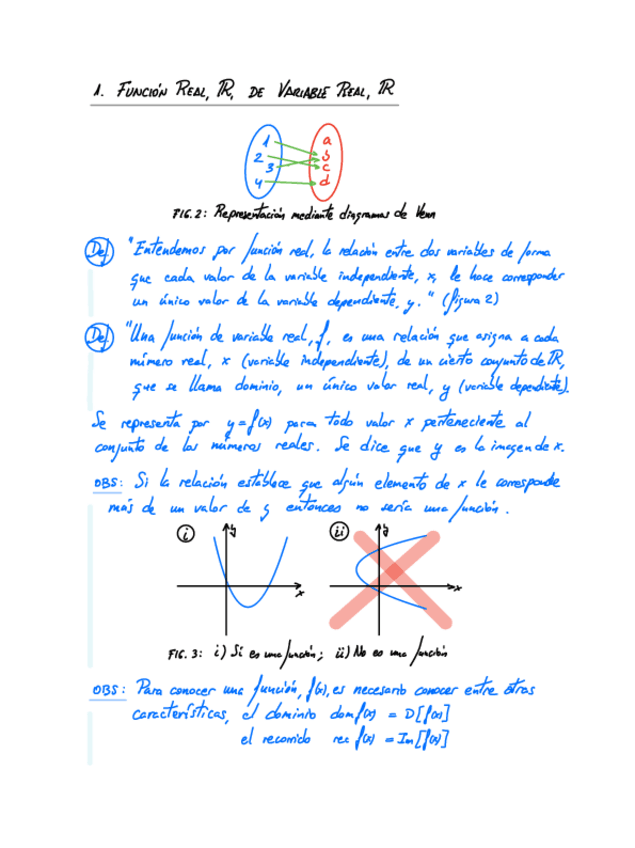 1. FUNCIÓN REAL, ℝ, DE VARIABLE REAL, ℝ
1 a
2 b
3 c
4 d
FIG. 2: Representación mediante diagramas de Venn
Def "Entendemos por función real, la relación entre dos variables de forma
que cada valor de la variable independiente, x, le hace corresponder
un único valor de la variable dependiente, y." (figura 2)
Def "Una función de variable real, f, es una relación que asigna a cada
número real, x (variable independiente), de un cierto conjunto de ℝ,
que se llama dominio, un único valor real, y (variable dependiente).
Se representa por y = f(x) para todo valor x perteneciente al
conjunto de los números reales. Se dice que y es la imagen de x.
OBS: Si la relación establece que algún elemento de x le corresponde
más de un valor de y entonces no sería una función.
i y x
ii y x
FIG. 3: i) Sí es una función; ii) No es una función
OBS: Para conocer una función, f(x), es necesario conocer entre otras
características, el dominio dom f(x) = D[f(x)]
el recorrido rec f(x) = Im[f(x)]